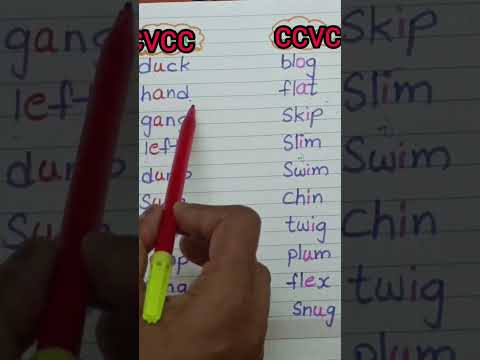 CVCC
CCVC
duck
blog
hand
flat
gang
skip
left
slim
dump
swim
chin
twig
plum
flex
snug